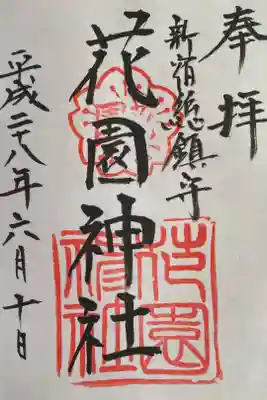 奉拝
新宿総鎮守
花園神社
平成二十八年六月十日
花園神社